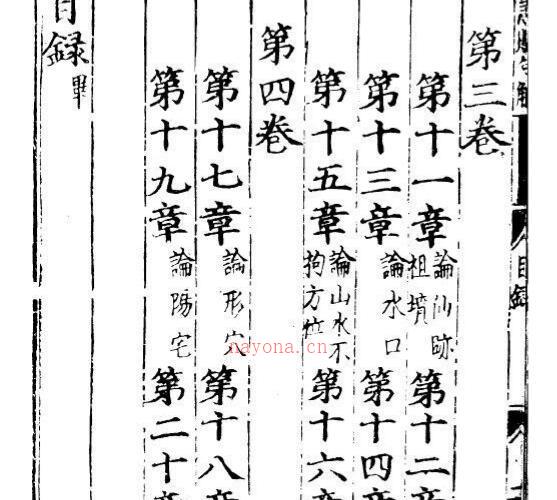 第三卷
第十一章 論仙跡祖墳 第十二
第十三章 論水口 第十四章
第十五章 論山水不拘方位 第十六章
第四卷
第十七章 論形穴 第十八章
第十九章 論陽宅 第二十章
目録畢
目録
nayona.cn